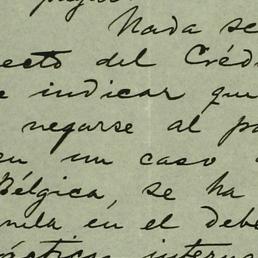 Nada se
ecto del Créd
e indicar que
negarse al pa
en un caso
Bélgica, se ha
nula en el debe